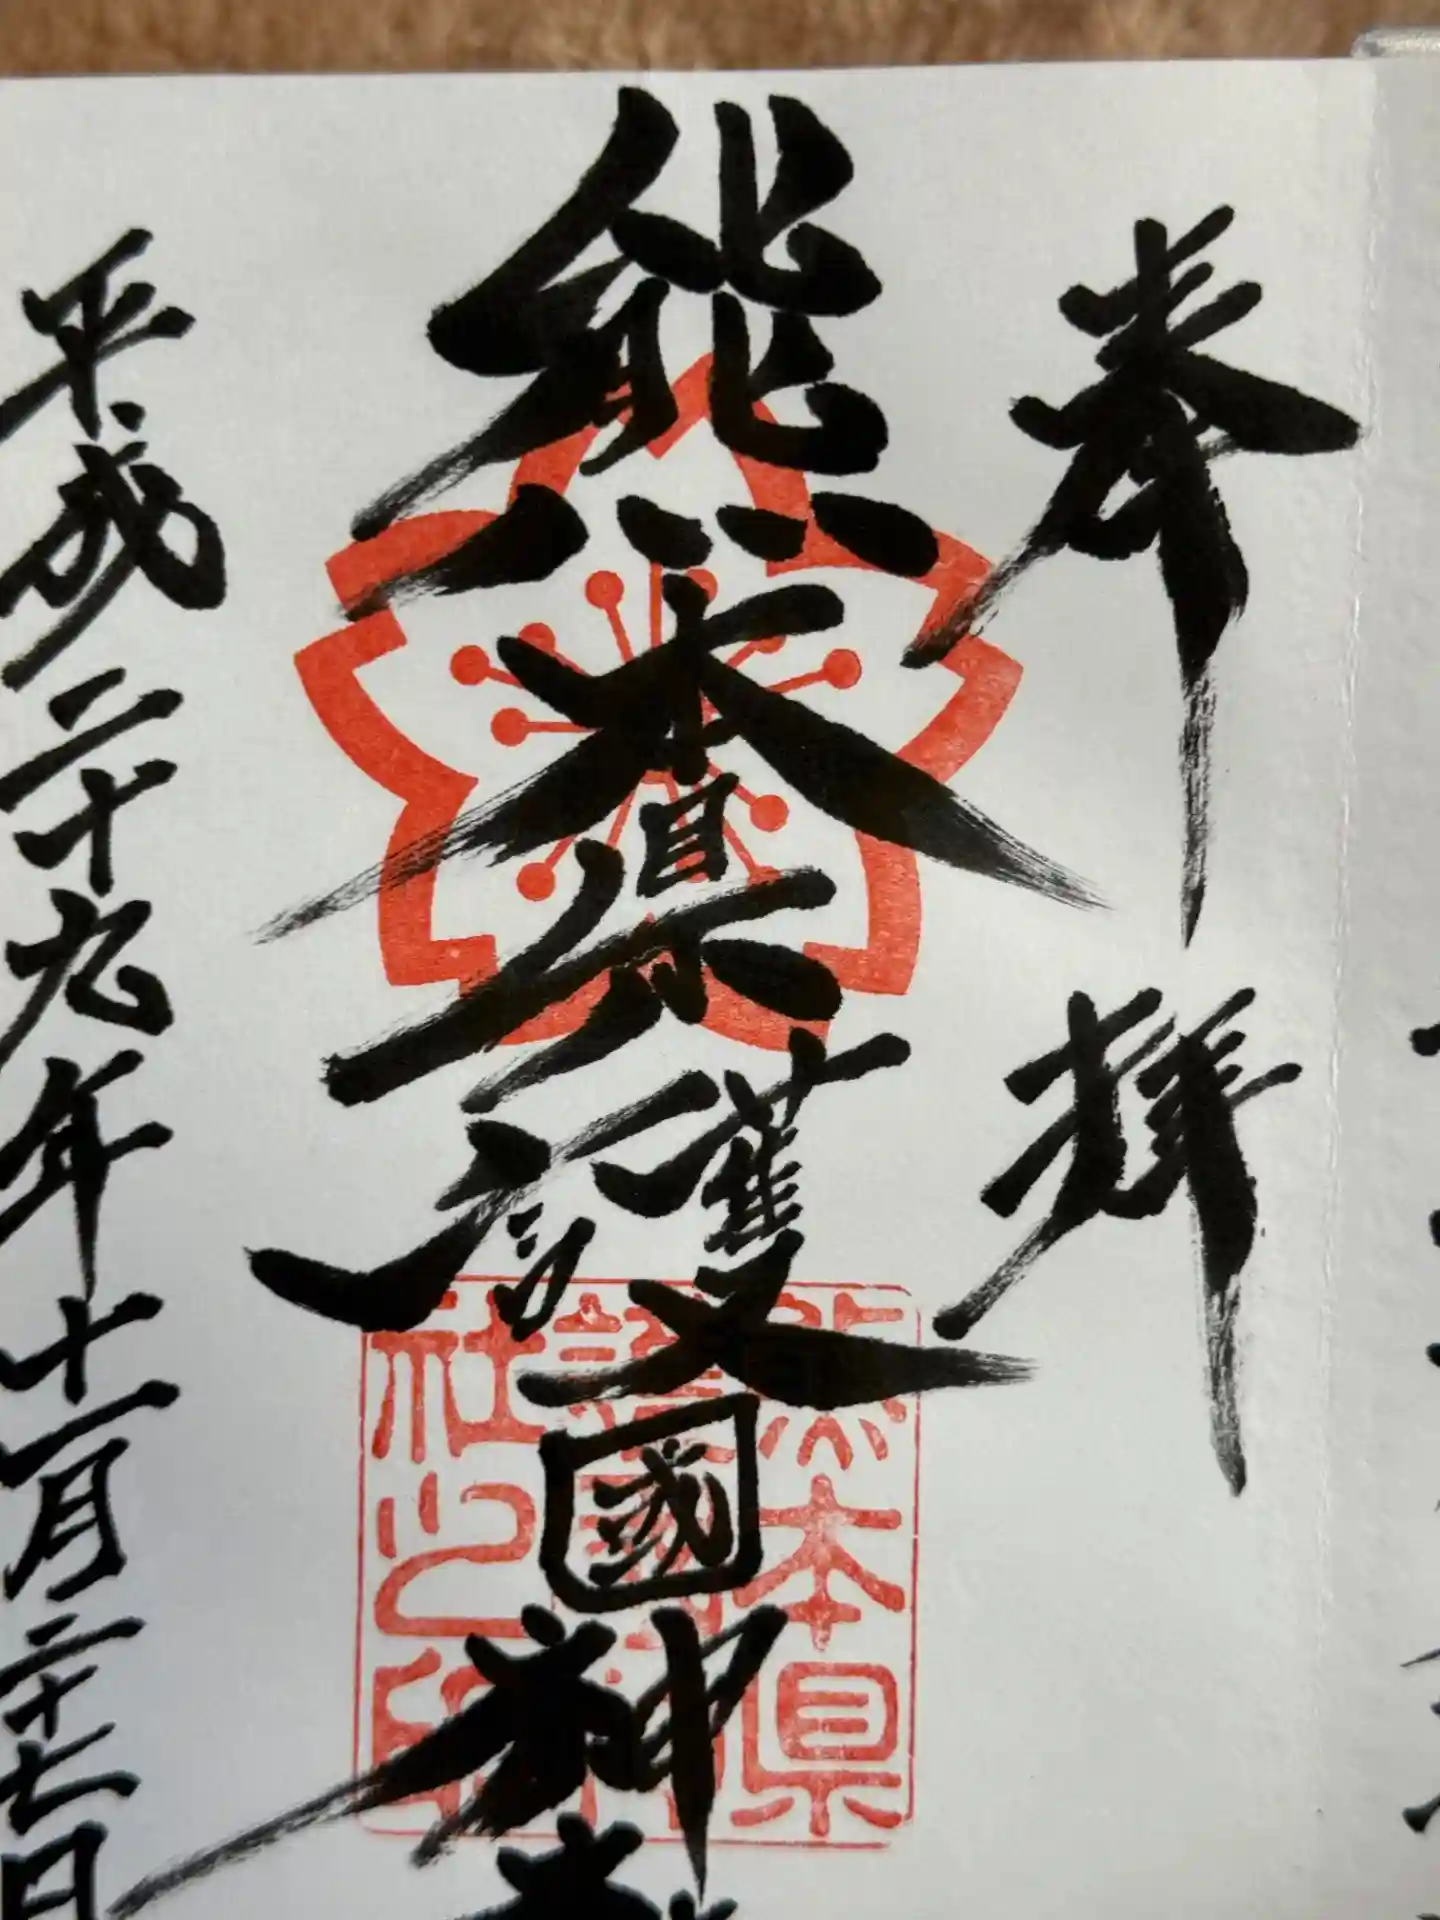 奉拝
熊本県護國神社
熊本県
護國神
社之印
平成二十九年十一月二十七日